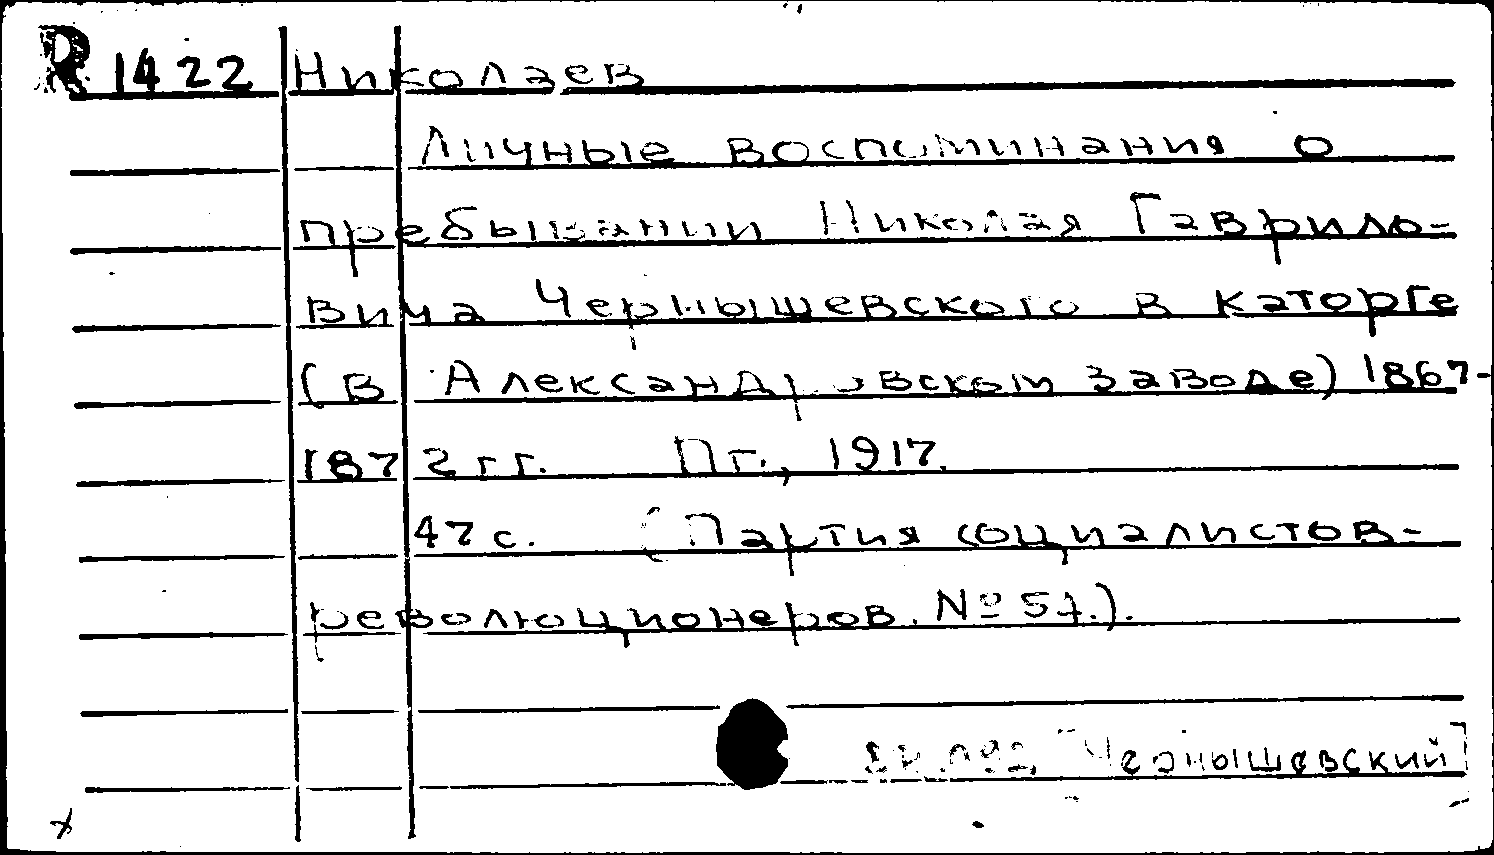 R 1422 Николаев
Личные воспоминания о
пребывании Николая Гаврило-
вича Чернышевского в каторге
(в Александровском заводе) 1867-
1872 гг. Пг., 1917.
47 с. (Партия социалистов-
революционеров. № 57.).
[Чернышевский]